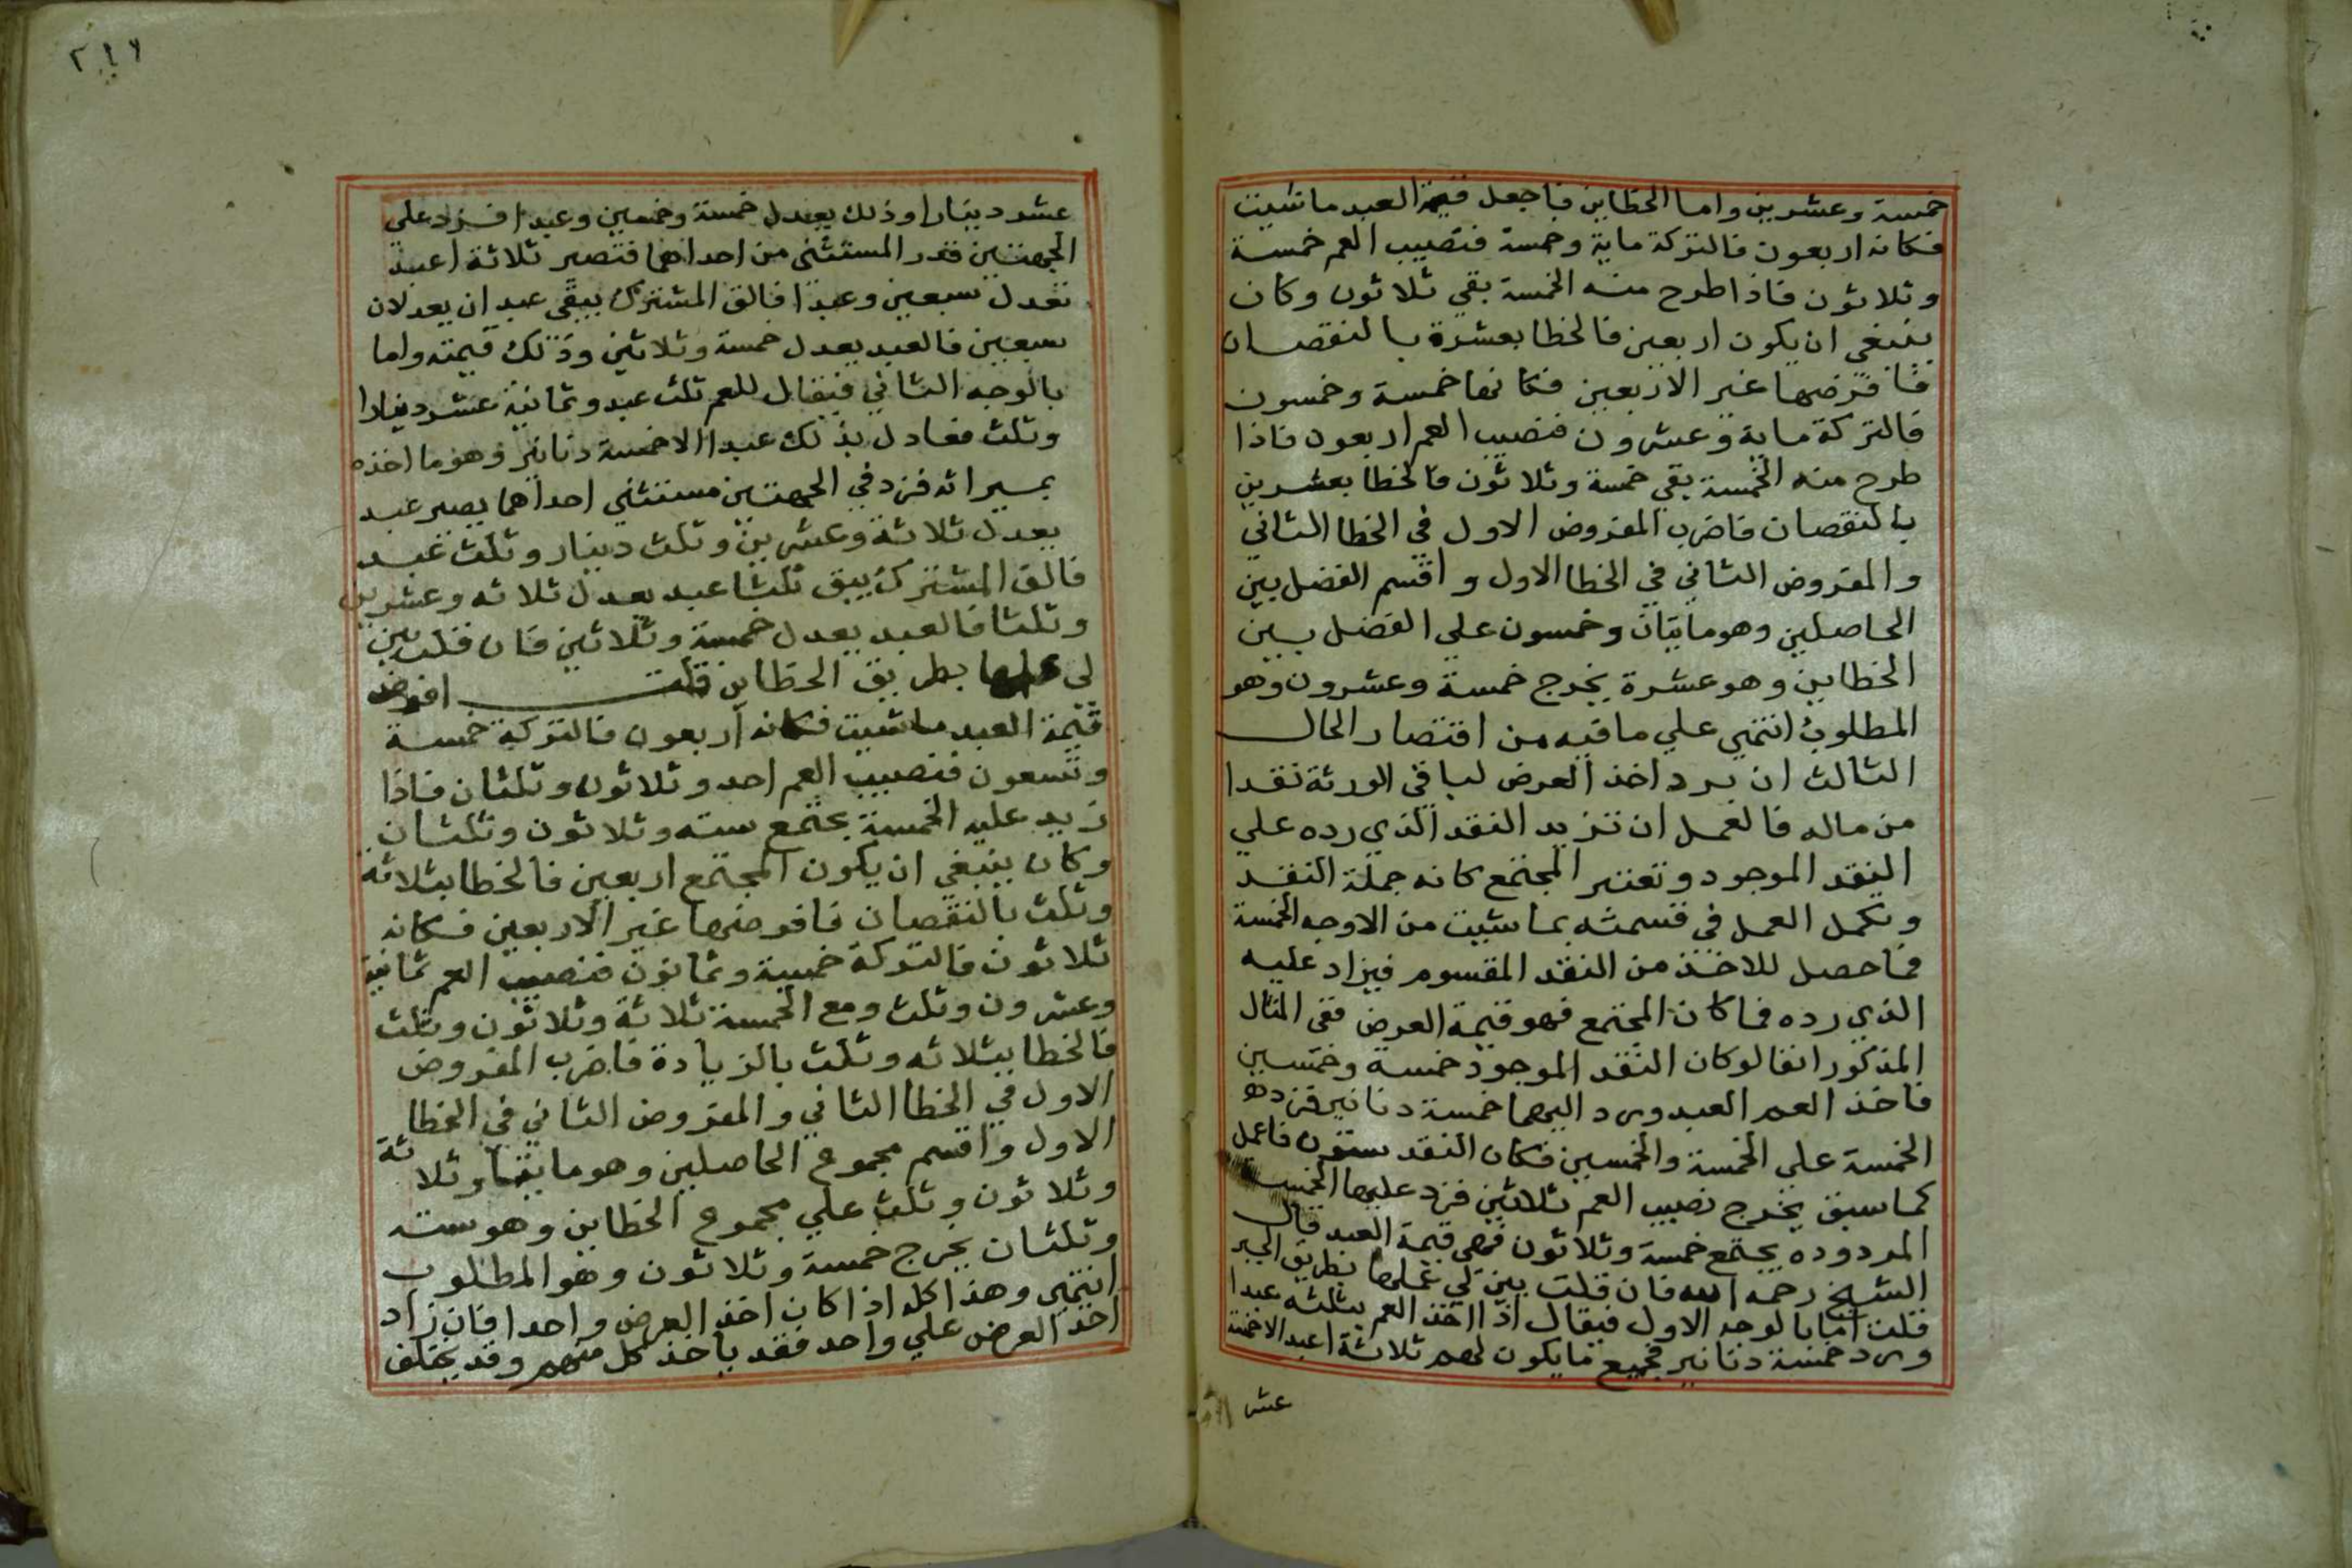 خمسة وعشرين واما الخطاين فاجعل قيمة العبد ماشيت
فكانه اربعون فالتركة ماية وخمسة فنصيب العم خمسة
وثلاثون فاذا طرح منه الخمسة بقي ثلاثون وكان
ينبغي ان يكون اربعين فالخطا بعشرة بالنقصان
فافرضها غير الاربعين فكانها خمسة وخمسون
فالتركة ماية وعشرون فنصيب العم اربعون فاذا
طرح منه الخمسة بقي خمسة وثلاثون فالخطا بعشرين
بالنقصان فاضرب المفروض الاول في الخطا الثاني
والمفروض الثاني في الخطا الاول واقسم الفضل بين
الحاصلين وهو مايتان وخمسون علي الفضل بين
الخطاين وهو عشرة يخرج خمسة وعشرون وهو
المطلوب انتهي علي ما فيه من اقتصار الحال
الثالث ان يرد اخذ العرض لباقي الورثة نقدا
من ماله فالعمل ان تزيد النقد الذي رده علي
النقد الموجود وتعتبر المجتمع كانه جملة النقد
وتكمل العمل في قسمته بماشيت من الاوجه الخمسة
فما حصل للاخذ من النقد المقسوم فيزاد عليه
الذي رده فما كان المجتمع فهو قيمة العرض ففي المثال
المذكور انفا لو كان النقد الموجود خمسة وخمسين
فاخذ العم العبد ورد اليهما خمسة دنانير فزد هـ
الخمسة علي الخمسة والخمسين فكان النقد ستون فاعمل
كما سبق يخرج نصيب العم ثلاثين فزد عليها الخمسة
المردوده يجتمع خمسة وثلاثون فهي قيمة العبد قال
الشيخ رحمه الله فان قلت بين لي عملها بطريق الجبر
قلت اما بالوجه الاول فيقال اذا اخذ العم بثلثه عبدا
ورد خمسة دنانير فجميع ما يكون لهم ثلاثة اعبد الا خمسة
عشر
٢٤٧
عشر دينارا وذلك يعدل خمسة وخمسين وعبدا فزد علي
الجهتين قدر المستثني من احداهما فتصير ثلاثة اعبد
تعدل سبعين وعبدا فالق المشترك يبقي عبدان يعدلان
سبعين فالعبد يعدل خمسة وثلاثين وذلك قيمته واما
بالوجه الثاني فيقال للعم ثلث عبد وثمانية عشر دينارا
وثلث فعادل بذلك عبدا الا خمسة دنانير وهو ما اخذه
بميراثه فزد في الجهتين مستثني احداهما يصير عبد
يعدل ثلاثة وعشرين وثلث دينار وثلث عبد
فالق المشترك يبق ثلثا عبد يعدل ثلاثه وعشرين
وثلثا فالعبد يعدل خمسة وثلاثين فان قلت بين
لي عملها بطريق الخطاين قلت افرض
قيمة العبد ماشيت فكانه اربعون فالتركة خمسة
وتسعون فنصيب العم احد وثلاثون وثلثان فاذا
زيد عليه الخمسة يجتمع سته وثلاثون وثلثان
وكان ينبغي ان يكون المجتمع اربعين فالخطا بثلاثة
وثلث بالنقصان فافرضها غير الاربعين فكانه
ثلاثون فالتركة خمسة وثمانون فنصيب العم ثمانية
وعشرون وثلث ومع الخمسة ثلاثة وثلاثون وثلث
فالخطا بثلاثه وثلث بالزيادة فاضرب المفروض
الاول في الخطا الثاني والمفروض الثاني في الخطا
الاول واقسم مجموع الحاصلين وهو مايتا وثلاثة
وثلاثون وثلث علي مجموع الخطاين وهو سته
وثلثان يخرج خمسة وثلاثون وهو المطلوب
انتهي وهذا كله اذا كان اخذ العرض واحدا فان زاد
اخذ العرض علي واحد فقد ياخذ كل منهم وقد يختلف